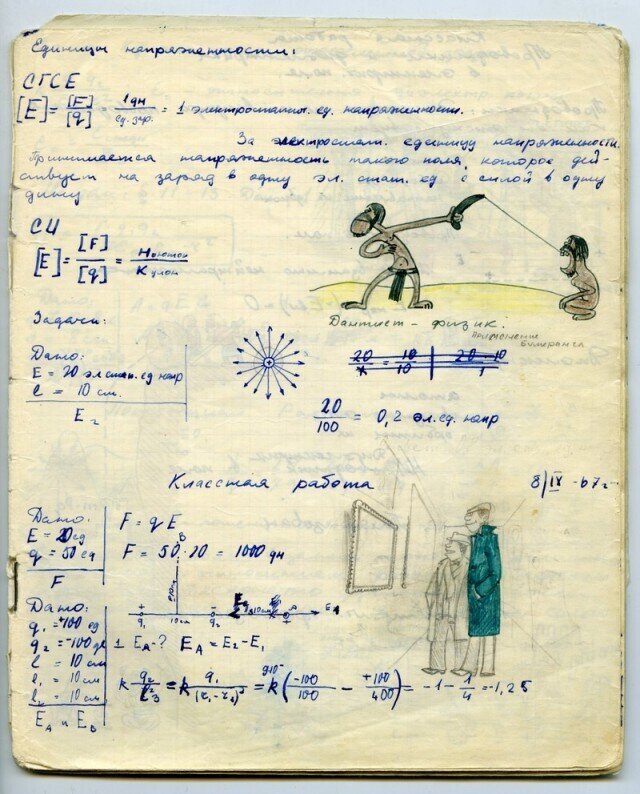 Единицы напряженности:
СГСЕ
[E] = [F]/[q] = 1 дн/ед. зар. = 1 электростатич. ед. напряженности.
За электростат. единицу напряженности
принимается напряженность такого поля, которое дей-
ствует на заряд в одну эл. стат. ед с силой в одну
дину
СИ
[E] = [F]/[q] = Ньютон/Кулон
Дантист - физик.
Применение
бумеранга
Задачи:
Дано:
E = 20 эл. стат. ед напр
l = 10 см.
E₂
20/100 = 0,2 эл. ед. напр
Классная работа 8/IV-67г
Дано:
E = 20 ед
q = 50 ед
F
F = qE
F = 50 · 20 = 1000 дн
Дано:
q₁ = +100 ед
q₂ = -100 ед
l = 10 см
l₁ = 10 см
l₂ = 10 см
E_A и E_B
B
+ - A E_A
q₁ 10 см q₂ 10 см
1 E_A - ? E_A = E₂ - E₁
= k (-100/100 - +100/400) = -1 - 1/4 = -1,25